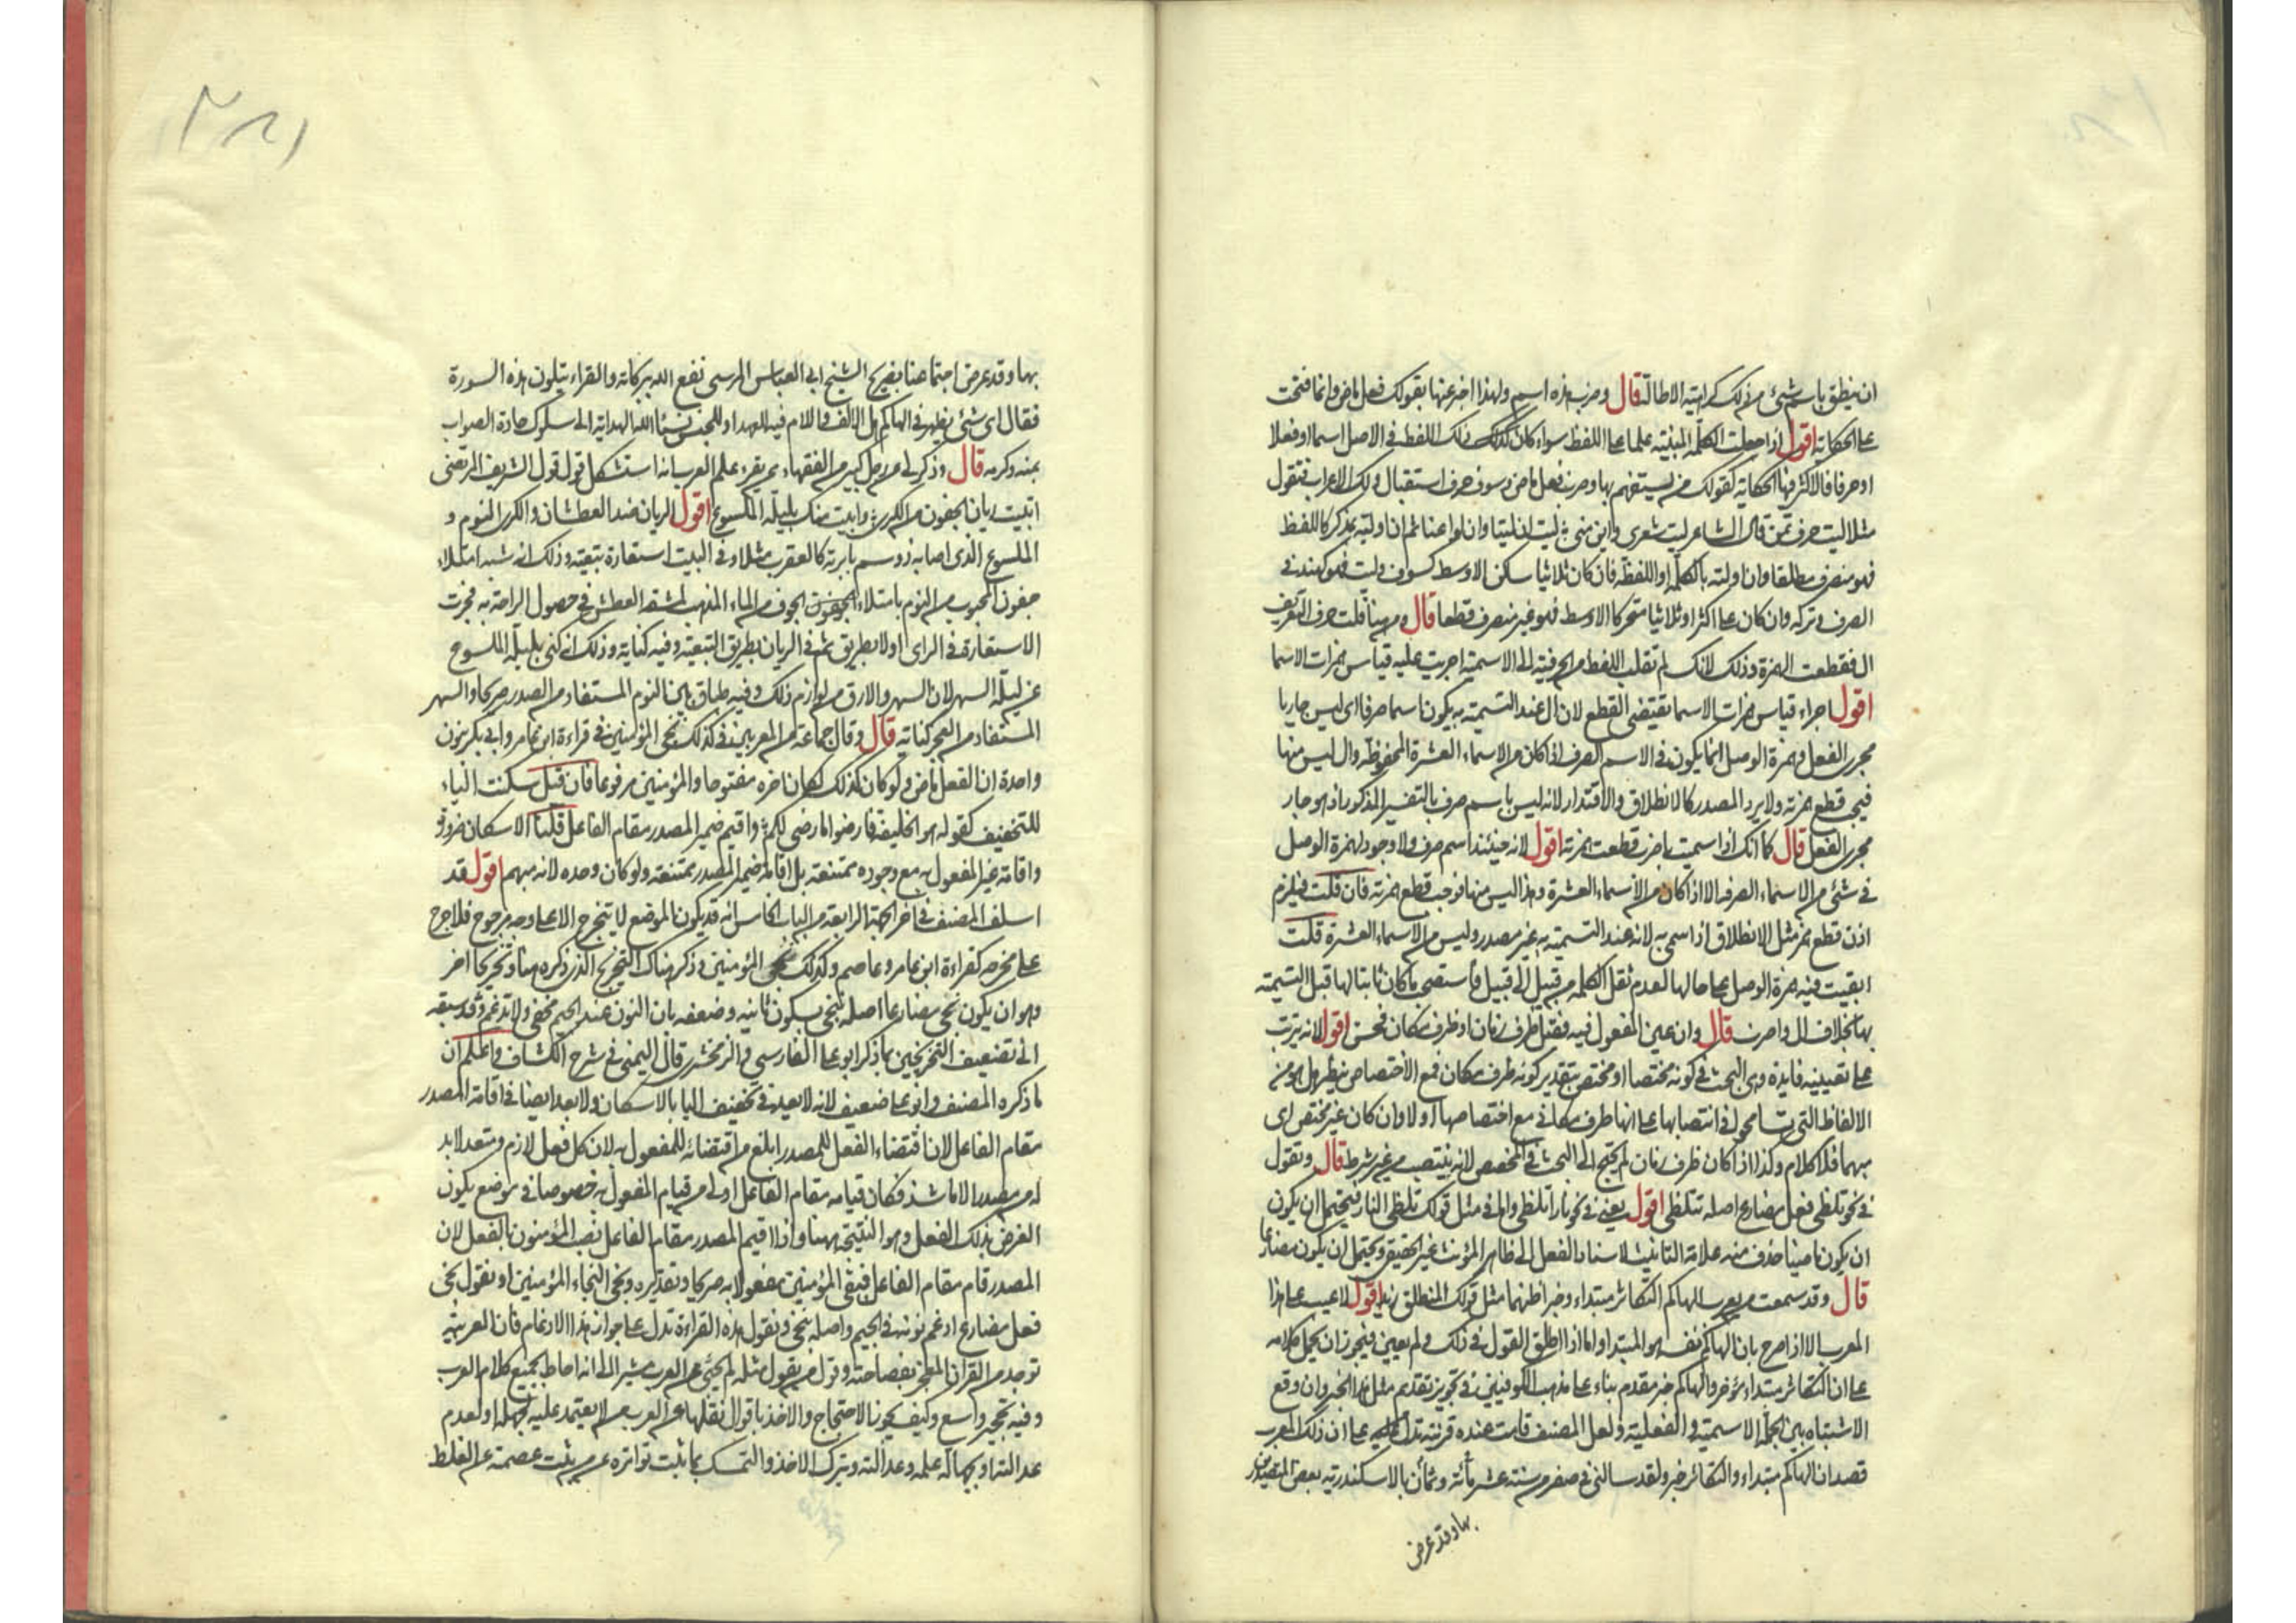 ان ينطق باسم شئ من ذلك كراهية الاطالة قال وضرب هذه اسم ولهذا اخبر عنها بقولك فعل ماض وانما فتحت
على الحكاية اقول اذا جعلت الكلمة المبنية علما على اللفظ سواء كان ذلك اللفظ في الاصل اسما او فعلا
او حرفا فالاكثر فيها الحكاية كقولك من يستفهم بها وضرب فعل ماض وسوف حرف استقبال ولك الاعراب فتقول
مثلا ليت حرف تمن قال الشاعر ليت شعري واين مني ليت ان ليتا وان لوا عناء ثم ان اولته بمذكر كاللفظ
فهو منصرف مطلقا وان اولته بالكلمة او اللفظة فان كان ثلاثيا ساكن الاوسط كسوف وليت فهو كهند في
الصرف وتركه وان كان على اكثر او ثلاثيا متحركا الاوسط فهو غير منصرف قطعا قال ومن هنا قلت حرف التعريف
ال فقطعت الهمزة وذلك لانك لم تنقل اللفظ من الحرفية الى الاسمية اجريت عليه قياس همزات الاسما
اقول اجراء قياس همزات الاسما يقتضي القطع لان ال عند التسمية به يكون اسما صرفا اي ليس جاريا
مجرى الفعل وهمزة الوصل انما يكون في الاسم الصرف اذا كان من الاسماء العشرة المحفوظة وال ليس منها
فيجب قطع همزته ولا يرد المصدر كالانطلاق والاقتدار لانه ليس باسم صرف بالتفسير المذكور اذ هو جار
مجرى الفعل قال كما انك اذا سميت باضرب قطعت همزته اقول لانه حينئذ اسم صرف ولا وجود لهمزة الوصل
في شئ من الاسماء الصرفة الا اذا كان من الاسماء العشرة وهذا ليس منها فوجب قطع همزته فان قلت فيلزم
اذن قطع همز مثل الانطلاق اذا سمي به لانه عند التسمية به غير مصدر وليس من الاسماء العشرة قلت
ابقيت فيه همزة الوصل على حالها لعدم نقل الكلمة من قبيل الى قبيل فاستصحب ما كان ثابتا لها قبل التسمية
بها بخلاف ال واضرب قال وان عين المفعول فيه فقيل ظرف زمان او ظرف مكان فحسن اقول لانه يترتب
على تعيينه فايدة وهي البحث في كونه مختصا او مختص بتقدير كونه ظرف مكان فمع الاختصاص ينظر هل هو من
الالفاظ التي تسامحوا في انتصابها على انها ظرف مكان مع اختصاصها او لا وان كان غير مختص اي
مبهما فلا كلام وكذا اذا كان ظرف زمان لم يحتج الى البحث في المخصص لانه ينتصب من غير شرط قال وتقول
في نحو تلظى فعل مضارع اصله تتلظى اقول يعني في نحو نارا تلظى واما في مثل قولك تلظى النار فيحتمل ان يكون
ان يكون ماضيا حذف منه علامة التانيث لاسناد الفعل الى ظاهر المؤنث غير الحقيقي ويحتمل ان يكون مضارعا
قال وقد سمعت من يعرب الهاكم التكاثر مبتداء وخبرا ظنهما مثل قولك المنطلق زيد اقول لا عيب على هذا
المعرب الا اذا صرح بان الهاكم نفسه هو المبتدا واما اذا اطلق القول في ذلك ولم يعين فيجوز ان يحمل كلامه
على ان التكاثر مبتداء مؤخر والهاكم خبر مقدم بناء على مذهب الكوفيين في تجويز تقديم مثل هذا الخبر وان وقع
الاشتباه بين الجملة الاسمية والفعلية ولعل المصنف قامت عنده قرينة تدل على ان ذلك المعرب
قصد ان الهاكم مبتداء والتكاثر خبر ولقد سالني في صفر من سنة عشر مائة وثمان بالاسكندرية بعض
بها وقد عرض
١٨٢
بها وقد عرض اجتماعنا بضريح الشيخ ابي العباس المرسي نفع الله ببركاته والقراء يتلون هذه السورة
فقال اي شئ يظهر في الهاكم هل الالف واللام فيه للعهد او للجنس نسئال الله الهداية الى سلوك جادة الصواب
بمنه وكرمه قال وذكر لي عن رجل كبير من الفقهاء ممن يقرء علم العربية انه استشكل قول الشريف المرتضى
اتبيت ريان الجفون من الكرى وابيت منك بليلة الملسوع اقول الريان ضد العطشان والكرى النوم و
الملسوع الذي اصابه ذو سم بابرته كالعقرب مثلا وفي البيت استعارة تبعية وذلك انه شبه امتلاء
جفون المحبوب من النوم بامتلاء الجوف من الماء المذهب لمشقة العطش في حصول الراحة به فجرت
الاستعارة في الراي اولا بطريق ثم في الريان بطريق التبعية وفيه كناية وذلك انه كنى بليلة الملسوع
عن ليلة السهر لان السهر والارق من لوازم ذلك وفيه طباق بين النوم المستفاد من الصدر صريحا والسهر
المستفاد من العجز كناية قال وقال جماعة من المعربين في كذلك نجي المؤمنين في قراءة ابن عامر وابي بكر بنون
واحدة ان الفعل ماض ولو كان كذلك لكان اخره مفتوحا والمؤمنين مرفوعا فان قيل سكنت الياء
للتخفيف كقوله هو الخليفة فارضوا ما رضي لكم واقيم ضمير المصدر مقام الفاعل قلنا الاسكان ضرورة
واقامة غير المفعول به مع وجوده ممتنعة بل اقامة ضمير المصدر ممتنعة ولو كان وحده لانه مبهم اقول قد
اسلف المصنف في اخر الجهة الرابعة من الباب الخامس انه قد يكون الموضع لا يتخرج الا على وجه مرجوح فلا حرج
على مخرجه كقراءة ابن عامر وعاصم وكذلك نجي المؤمنين وذكر هناك التخريج الذي ذكره هنا وتخريجا اخر
وهو ان يكون نجي مضارعا اصله ننجي بسكون ثانيه وضعفه بان النون عند الجيم تخفى ولا تدغم وقد سبقه
الى تضعيف التخريجين بما ذكر ابو على الفارسي والزمخشري قال اليمني في شرح الكشاف واعلم ان
ما ذكره المصنف وابو على ضعيف لانه لا بعد في تخفيف اليا بالاسكان ولا بعد ايضا في اقامة المصدر
مقام الفاعل لان اقتضاء الفعل للمصدر ابلغ من اقتضائه للمفعول به لان كل فعل لازم ومتعد لا بد
له من مصدر الا ما شذ فكان قيامه مقام الفاعل اولى من قيام المفعول به خصوصا في موضع يكون
الغرض بذلك الفعل وهو النتيجة ههنا واذا اقيم المصدر مقام الفاعل نصب المؤمنون بالفعل لان
المصدر قام مقام الفاعل فبقى المؤمنين مفعولا به صريحا وتقديره ونجي النجاء المؤمنين او نقول نجي
فعل مضارع ادغم نونه في الجيم واصله ننجي ونقول هذه القراءة تدل على جواز هذا الادغام فان العربية
توجد من القران المعجز بفصاحته وقول من يقول مثله لم يجئ عن العرب مشير الى انه احاط بجميع كلام العرب
وفيه تحجير واسع وكيف يجوز الاحتجاج والاخذ باقوال نقلها عن العرب من لا يعتمد عليه لجهله او لعدم
عدالته او بجهالة علمه وعدالته وبترك الاخذ والتمسك بما ثبت تواتره عمن ثبت عصمته عن الغلط